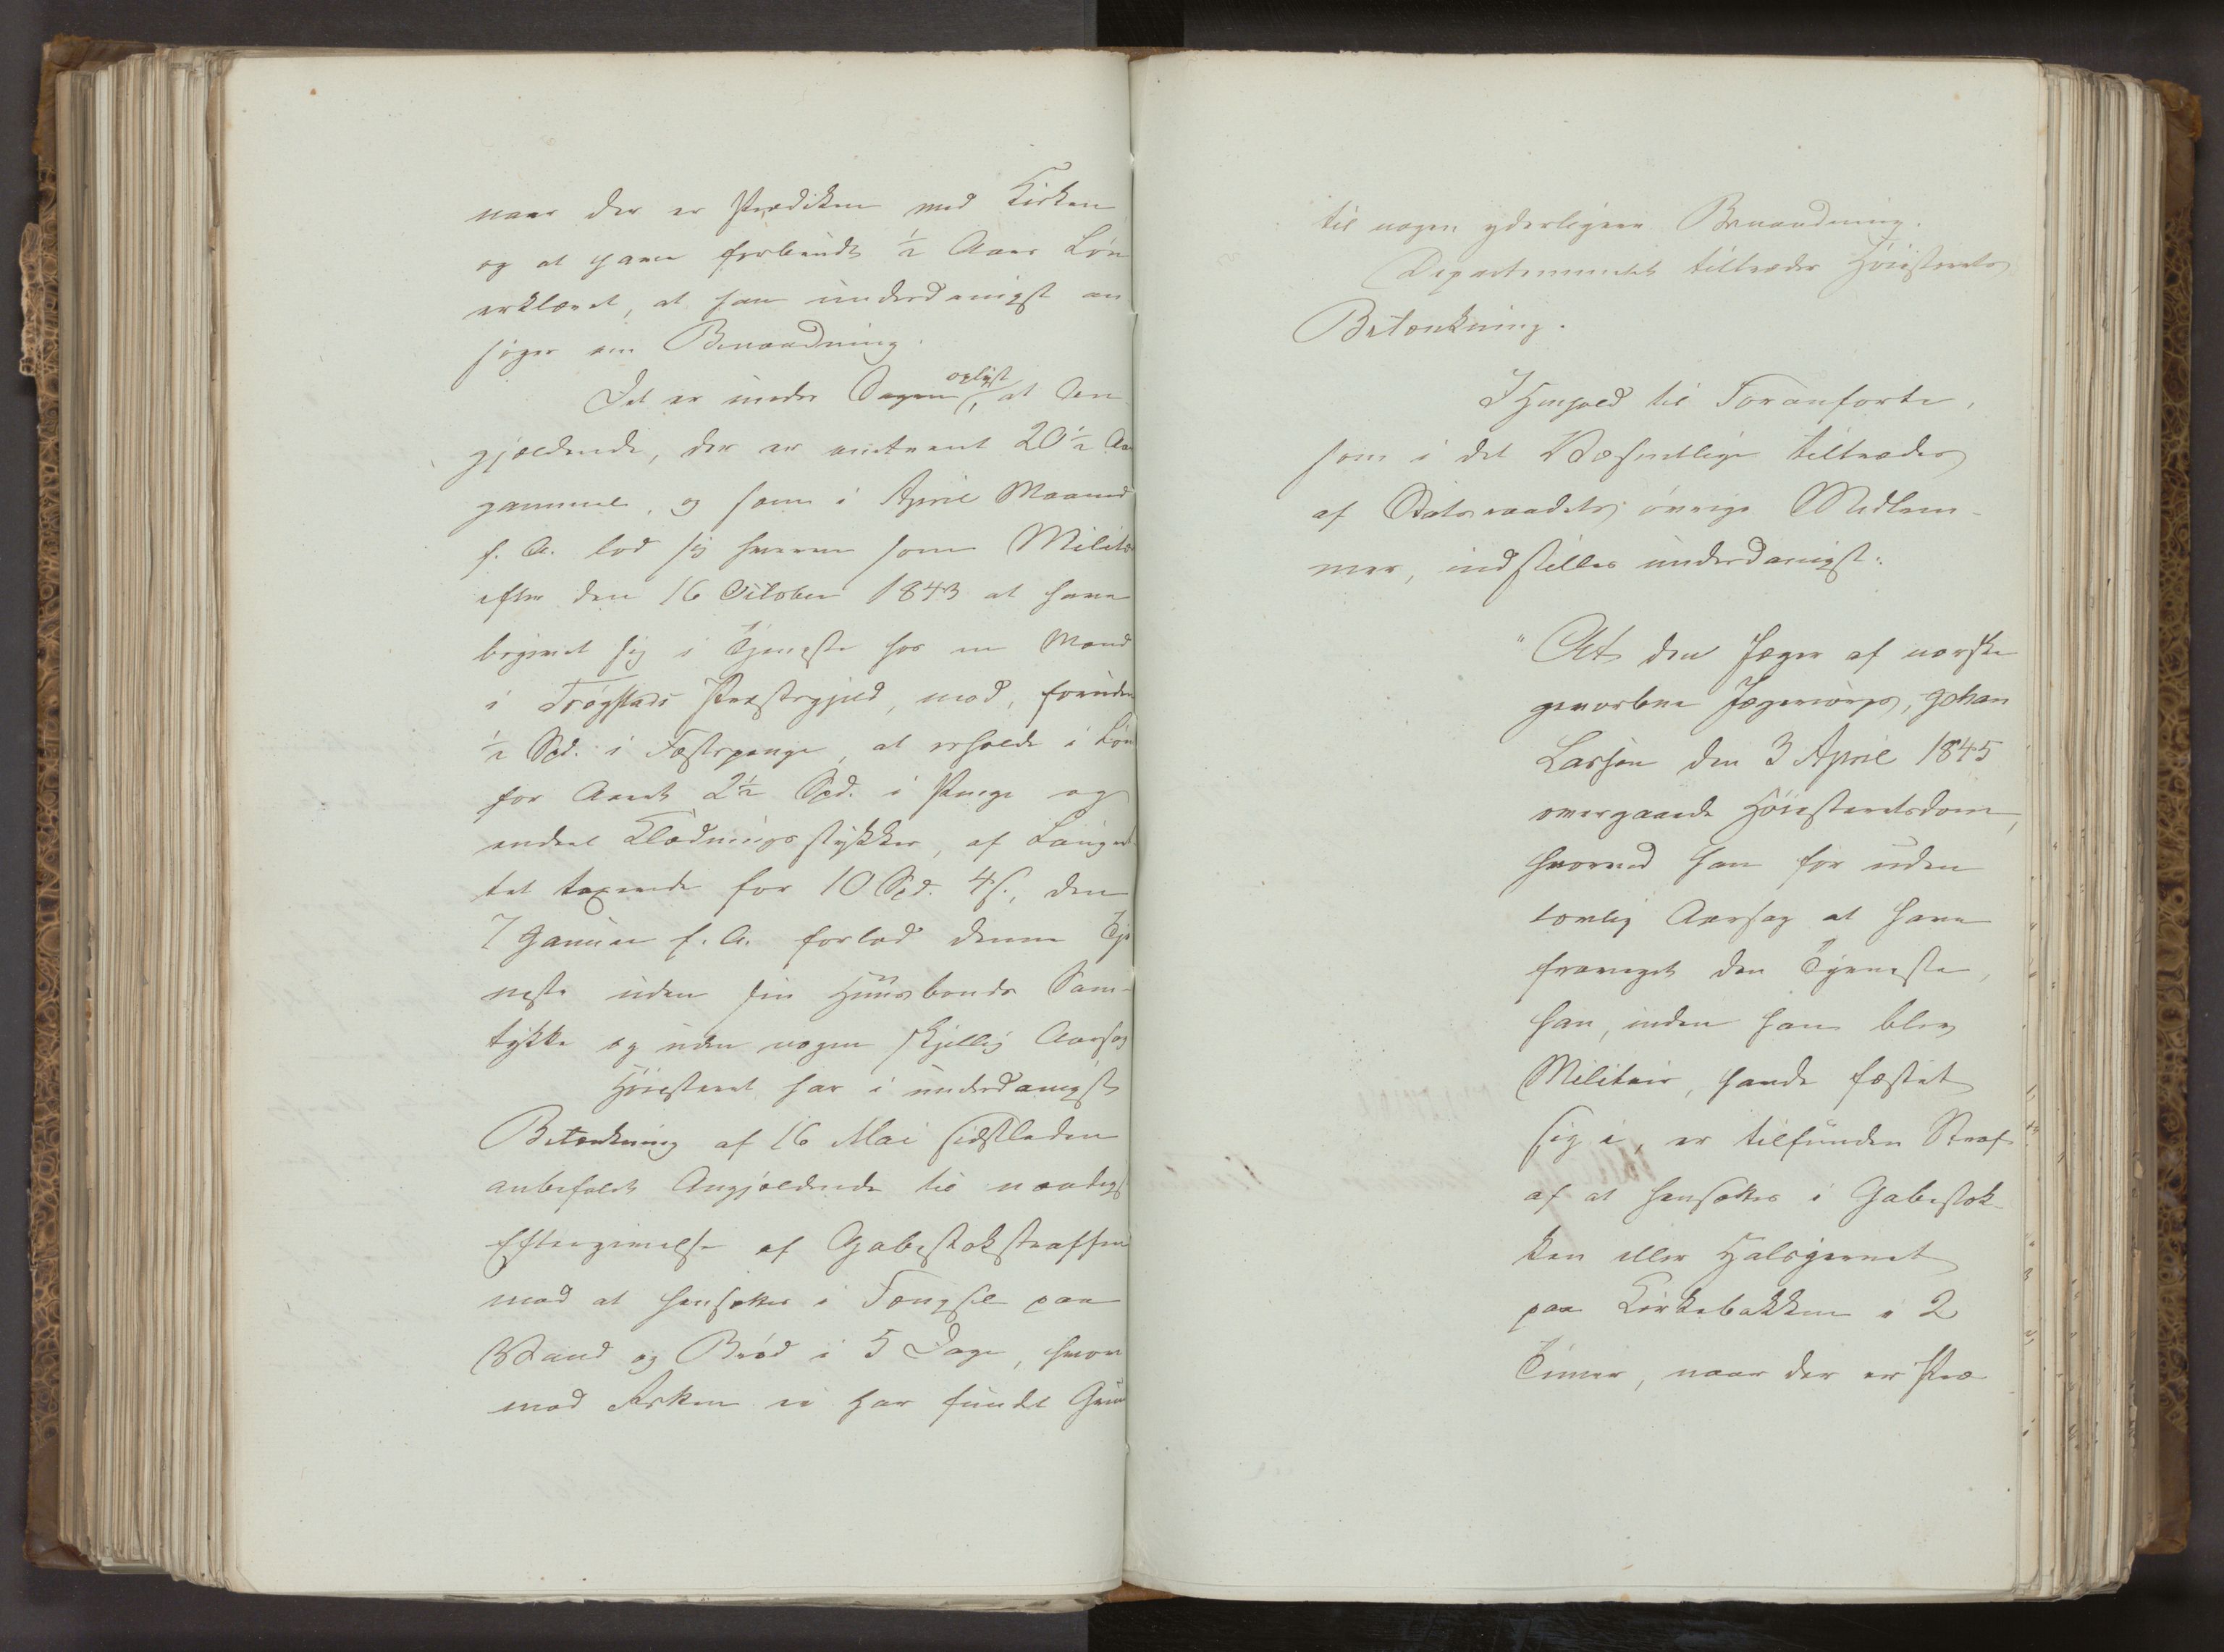 naar der er Prædiken ved Kirken
og at have forbrudt ½ Aars Løn
erklæret, at han underdanigst an
søger om Benaadning.
Det er under Sagen oplyst, at An
gjældende, der er omtrent 20½ Aar
gammel, og som i April Maaned
f. A. lod sig hverve som Militær
efter den 16 October 1843 at have
begivet sig i Tjeneste hos en Mand
i Trøgstads Præstegjeld, mod, foruden
½ Spd. i Fæstepenge, at erholde i Løn
for Aaret 2½ Spd. i Penge og
endeel Klædningsstykker, af Laugret
tet taxerede for 10 Spd. 4 s., den
7 Januar f. A. forlod denne Tje
neste uden sin Huusbonds Sam-
tykke og uden nogen skjellig Aarsag
Høiesteret har i underdanigst
Betænkning af 16 Mai sidstleden
anbefalet Angjældende til naadigst
Eftergivelse af Gabestokstraffen
mod at hensættes i Fængsel paa
Vand og Brød i 5 Dage, hvori
mod Retten ei har fundet Grund
til nogen yderligere Benaadning.
Departementet tiltræder Høiesterets
Betænkning.
I Henhold til Foranførte,
som i det Væsentlige tiltrædes
af Statsraadets øvrige Medlem-
mer, indstilles underdanigst:
"At den Jæger af norske
gevorbne Jægercorps, Johan
Larsen den 3 April 1845
overgaaede Høiesteretsdom,
hvorved han for uden
lovlig Aarsag at have
fraveget den Tjeneste,
han, inden han blev
Militair, havde fæstet
sig i, er tilfunden Straf
af at hensættes i Gabestok-
ken eller Halsjernet
paa Kirkebakken i 2
Timer, naar der er Præ